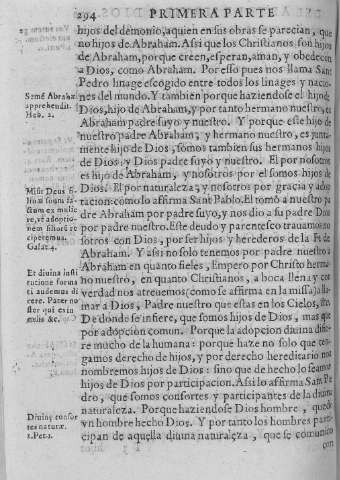 294 PRIMERA PARTE
hijos del demonio, a quien en sus obras se parecian, que
no hijos de Abraham. Assi que los Christianos son hijos
de Abraham, porque creen, esperan, aman, y obedecen
a Dios, como Abraham. Por esso pues nos llama Sant
Pedro linage escogido entre todos los linages y nacio-
nes del mundo. Y tambien porque haziendose el hijo de
Dios, hijo de Abraham, y por tanto hermano nuestro, es
Abraham padre suyo y nuestro. Y porque esse hijo de
nuestro padre Abraham, y hermano nuestro, es junta-
mente hijo de Dios, somos tambien sus hermanos hijos
de Dios: y Dios padre suyo y nuestro. El por nosotros
es hijo de Abraham, y nosotros por el somos hijos de
Dios. El por naturaleza, y nosotros por gracia y adop
tacion: como lo affirma Sant Pablo. El tomò a nuestro pa
dre Abraham por padre suyo, y nos dio a su padre Dios
por padre nuestro. Este deudo y parentesco trauamo no
sotros con Dios, por ser hijos y herederos de la Fe de
Abraham. Y assi no solo tenemos por padre nuestro a
Abraham en quanto fieles, Empero por Christo herma
no nuestro, en quanto Christianos, a boca llena y con
verdad nos atreuemos (como se affirma en la missa) lla-
mar a Dios, Padre nuestro que estas en los Cielos, &c.
De donde se infiere, que somos hijos de Dios, mas que
por adopcion comun. Porque la adopcion diuina difie
re mucho de la humana: porque haze no solo que ten-
gamos derecho de hijos, y por derecho hereditario nos
nombremos hijos de Dios: sino que de hecho lo seamos
hijos de Dios por participacion. Assi lo affirma Sam Pe
dro, que somos consortes y participantes de la diuina
naturaleza. Porque haziendose Dios hombre, quedò
vn hombre hecho Dios. Y por tanto los hombres parti-
cipan de aquella diuina naturaleza, que se comunicò
con
Semē Abrahæ
apprehendit.
Heb. 2.
Misit Deus fi-
lium suum fa-
ctum ex mulie
re, vt adoptio-
nem filiorū re
ciperemus.
Galat. 4.
Et diuina insti
tutione forma
ti audemus di
cere. Pater no
ster qui es in
cælis &c.
Diuinæ consor
tes naturæ.
2. Pet. 1.